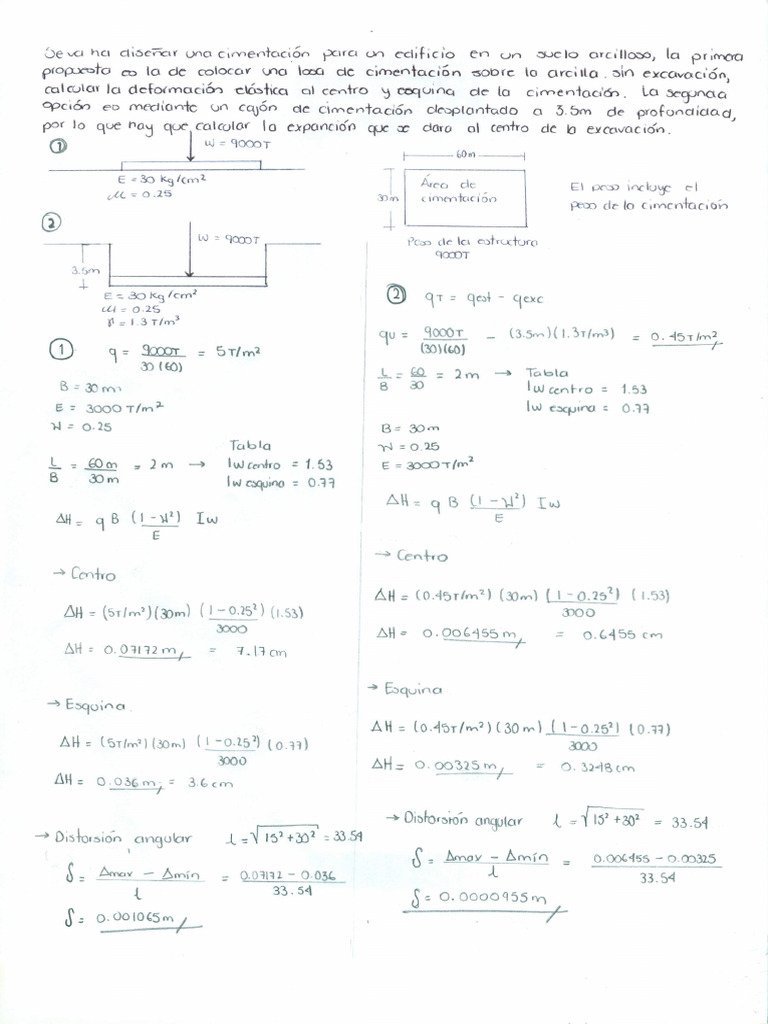 Se va ha diseñar una cimentación para un edificio en un suelo arcilloso, la primera
propuesta es la de colocar una losa de cimentación sobre la arcilla sin excavación,
calcular la deformación elástica al centro y esquina de la cimentación. La segunda
opción es mediante un cajón de cimentación desplantado a 3.5m de profundidad,
por lo que hay que calcular la expanción que se dara al centro de la excavación.
①
W = 9000T
E = 30 Kg/cm²
μ = 0.25
60m
30m
Área de
cimentación
El peso incluye el
peso de la cimentación
Peso de la estructura
9000T
②
W = 9000T
3.5m
E = 30 Kg/cm²
μ = 0.25
γ = 1.3 T/m³
① q = 9000T / 30(60) = 5T/m²
B = 30m
E = 3000 T/m²
μ = 0.25
L/B = 60m/30m = 2m → Tabla
Iw centro = 1.53
Iw esquina = 0.77
ΔH = q B (1-μ²)/E Iw
→ Centro
ΔH = (5T/m²)(30m) (1-0.25²)/3000 (1.53)
ΔH = 0.07172 m = 7.17cm
→ Esquina
ΔH = (5T/m²)(30m) (1-0.25²)/3000 (0.77)
ΔH = 0.036 m = 3.6cm
→ Distorsión angular l = √15² + 30² = 33.54
δ = Δmax - Δmín / l = 0.07172 - 0.036 / 33.54
δ = 0.001065m
② qT = qest - qexc
qu = 9000T / (30)(60) - (3.5m)(1.3T/m³) = 0.45T/m²
L/B = 60/30 = 2m → Tabla
Iw centro = 1.53
Iw esquina = 0.77
B = 30m
μ = 0.25
E = 3000T/m²
ΔH = q B (1-μ²)/E Iw
→ Centro
ΔH = (0.45T/m²) (30m) (1-0.25²)/3000 (1.53)
ΔH = 0.006455 m = 0.6455 cm
→ Esquina
ΔH = (0.45T/m²)(30m) (1-0.25²)/3000 (0.77)
ΔH = 0.00325 m = 0.3248 cm
→ Distorsión angular l = √15² + 30² = 33.54
δ = Δmax - Δmín / l = 0.006455 - 0.00325 / 33.54
δ = 0.0000955m